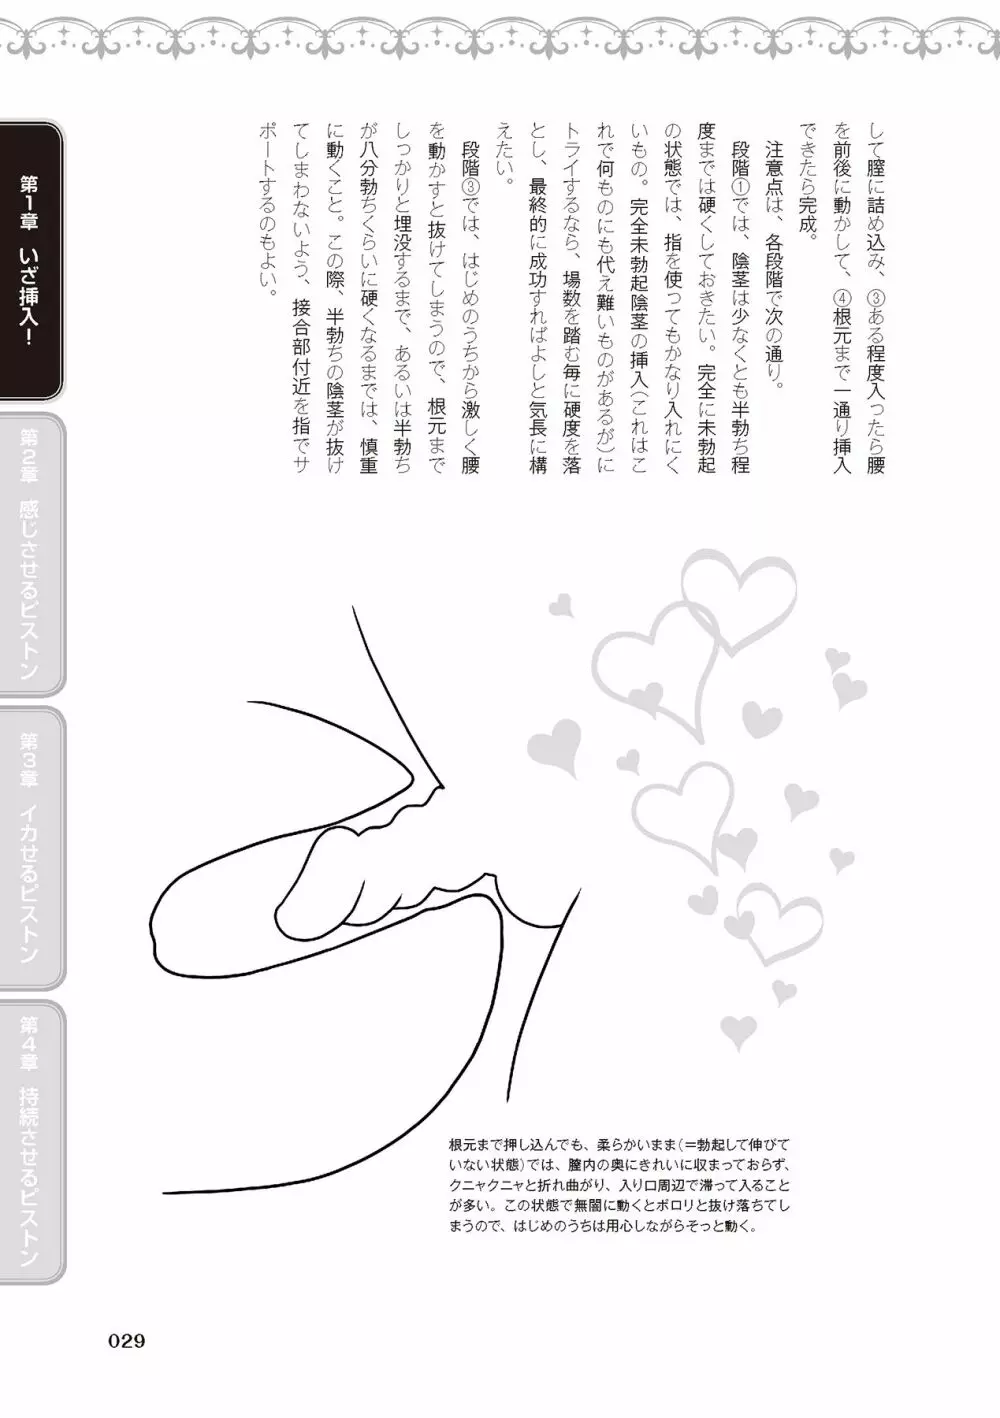 して膣に詰め込み、③ある程度入ったら腰
を前後に動かして、④根元まで一通り挿入
できたら完成。
注意点は、各段階で次の通り。
段階①では、陰茎は少なくとも半勃ち程
度までは硬くしておきたい。完全に未勃起
の状態では、指を使ってもかなり入れにく
いもの。完全未勃起陰茎の挿入(これはこ
れで何ものにも代え難いものがあるが)に
トライするなら、場数を踏む毎に硬度を落
とし、最終的に成功すればよしと気長に構
えたい。
段階③では、はじめのうちから激しく腰
を動かすと抜けてしまうので、根元まで
しっかりと埋没するまで、あるいは半勃ち
が八分勃ちくらいに硬くなるまでは、慎重
に動くこと。この際、半勃ちの陰茎が抜け
てしまわないよう、接合部付近を指でサ
ポートするのもよい。
第1章 いざ挿入!
第2章 感じさせるピストン
第3章 イカせるピストン
第4章 持続させるピストン
根元まで押し込んでも、柔らかいまま(=勃起して伸びて
いない状態)では、膣内の奥にきれいに収まっておらず、
クニャクニャと折れ曲がり、入り口周辺で滞って入ること
が多い。この状態で無闇に動くとポロリと抜け落ちてし
まうので、はじめのうちは用心しながらそっと動く。
029